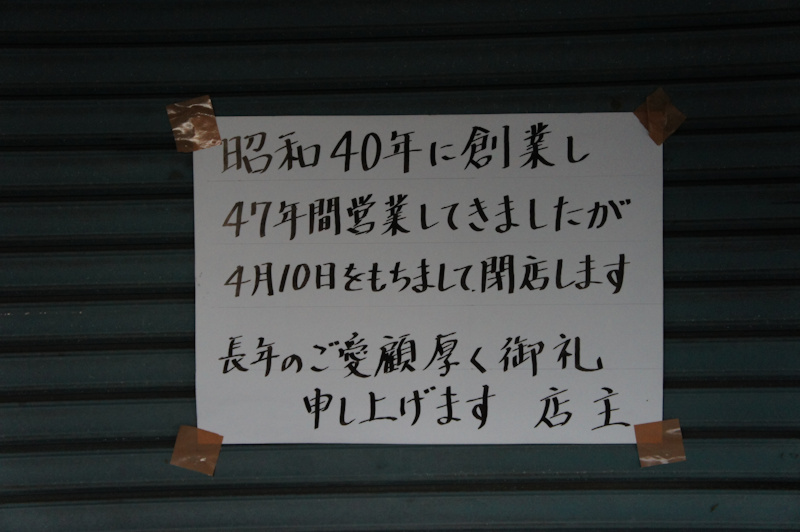 昭和40年に創業し
47年間営業してきましたが
4月10日をもちまして閉店します
長年のご愛顧厚く御礼
申し上げます 店主